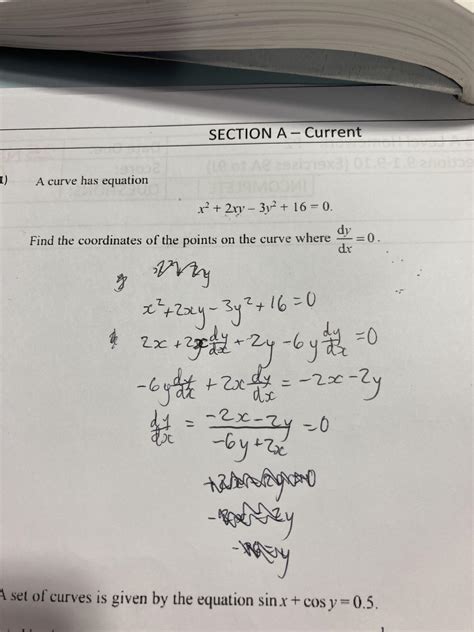 SECTION A – Current
1)
A curve has equation
x² + 2xy – 3y² + 16 = 0.
Find the coordinates of the points on the curve where dy/dx = 0.
x²+2xy-3y²+16=0
2x+2x dy/dx +2y-6y dy/dx =0
-6y dy/dx + 2x dy/dx = -2x-2y
dy/dx = (-2x-2y)/(-6y+2x) =0
A set of curves is given by the equation sin x + cos y = 0.5.